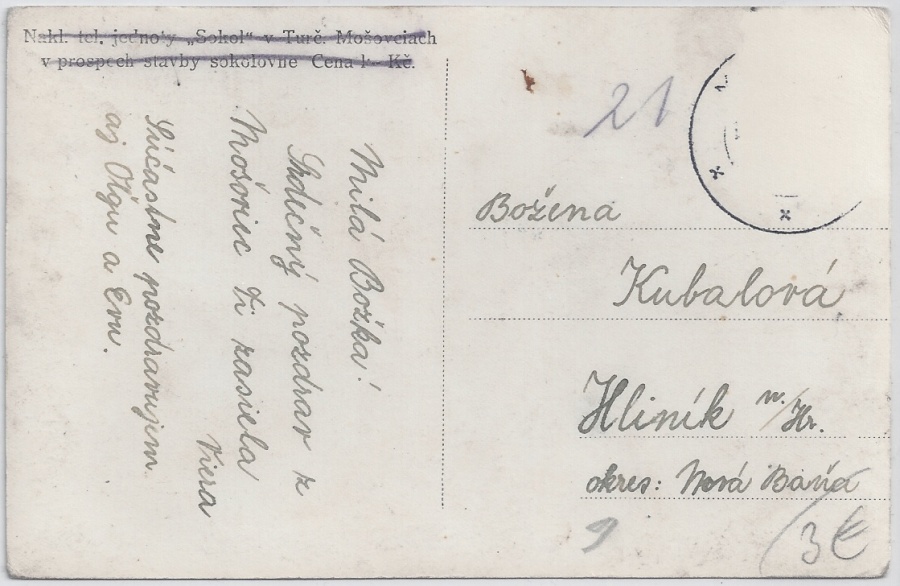 Nakl. tel. jednoty „Sokol“ v Turč. Mošovciach
v prospech stavby sokolovne Cena 1·- Kč.
Milá Božka!
Srdečný pozdrav z
Mošoviec Ti zasiela
Viera
Súčastne pozdravujem
aj Oľgu a Evu.
21
Božena
Kubalová
Hliník n./Hr.
okres: Nová Baňa
9
3€